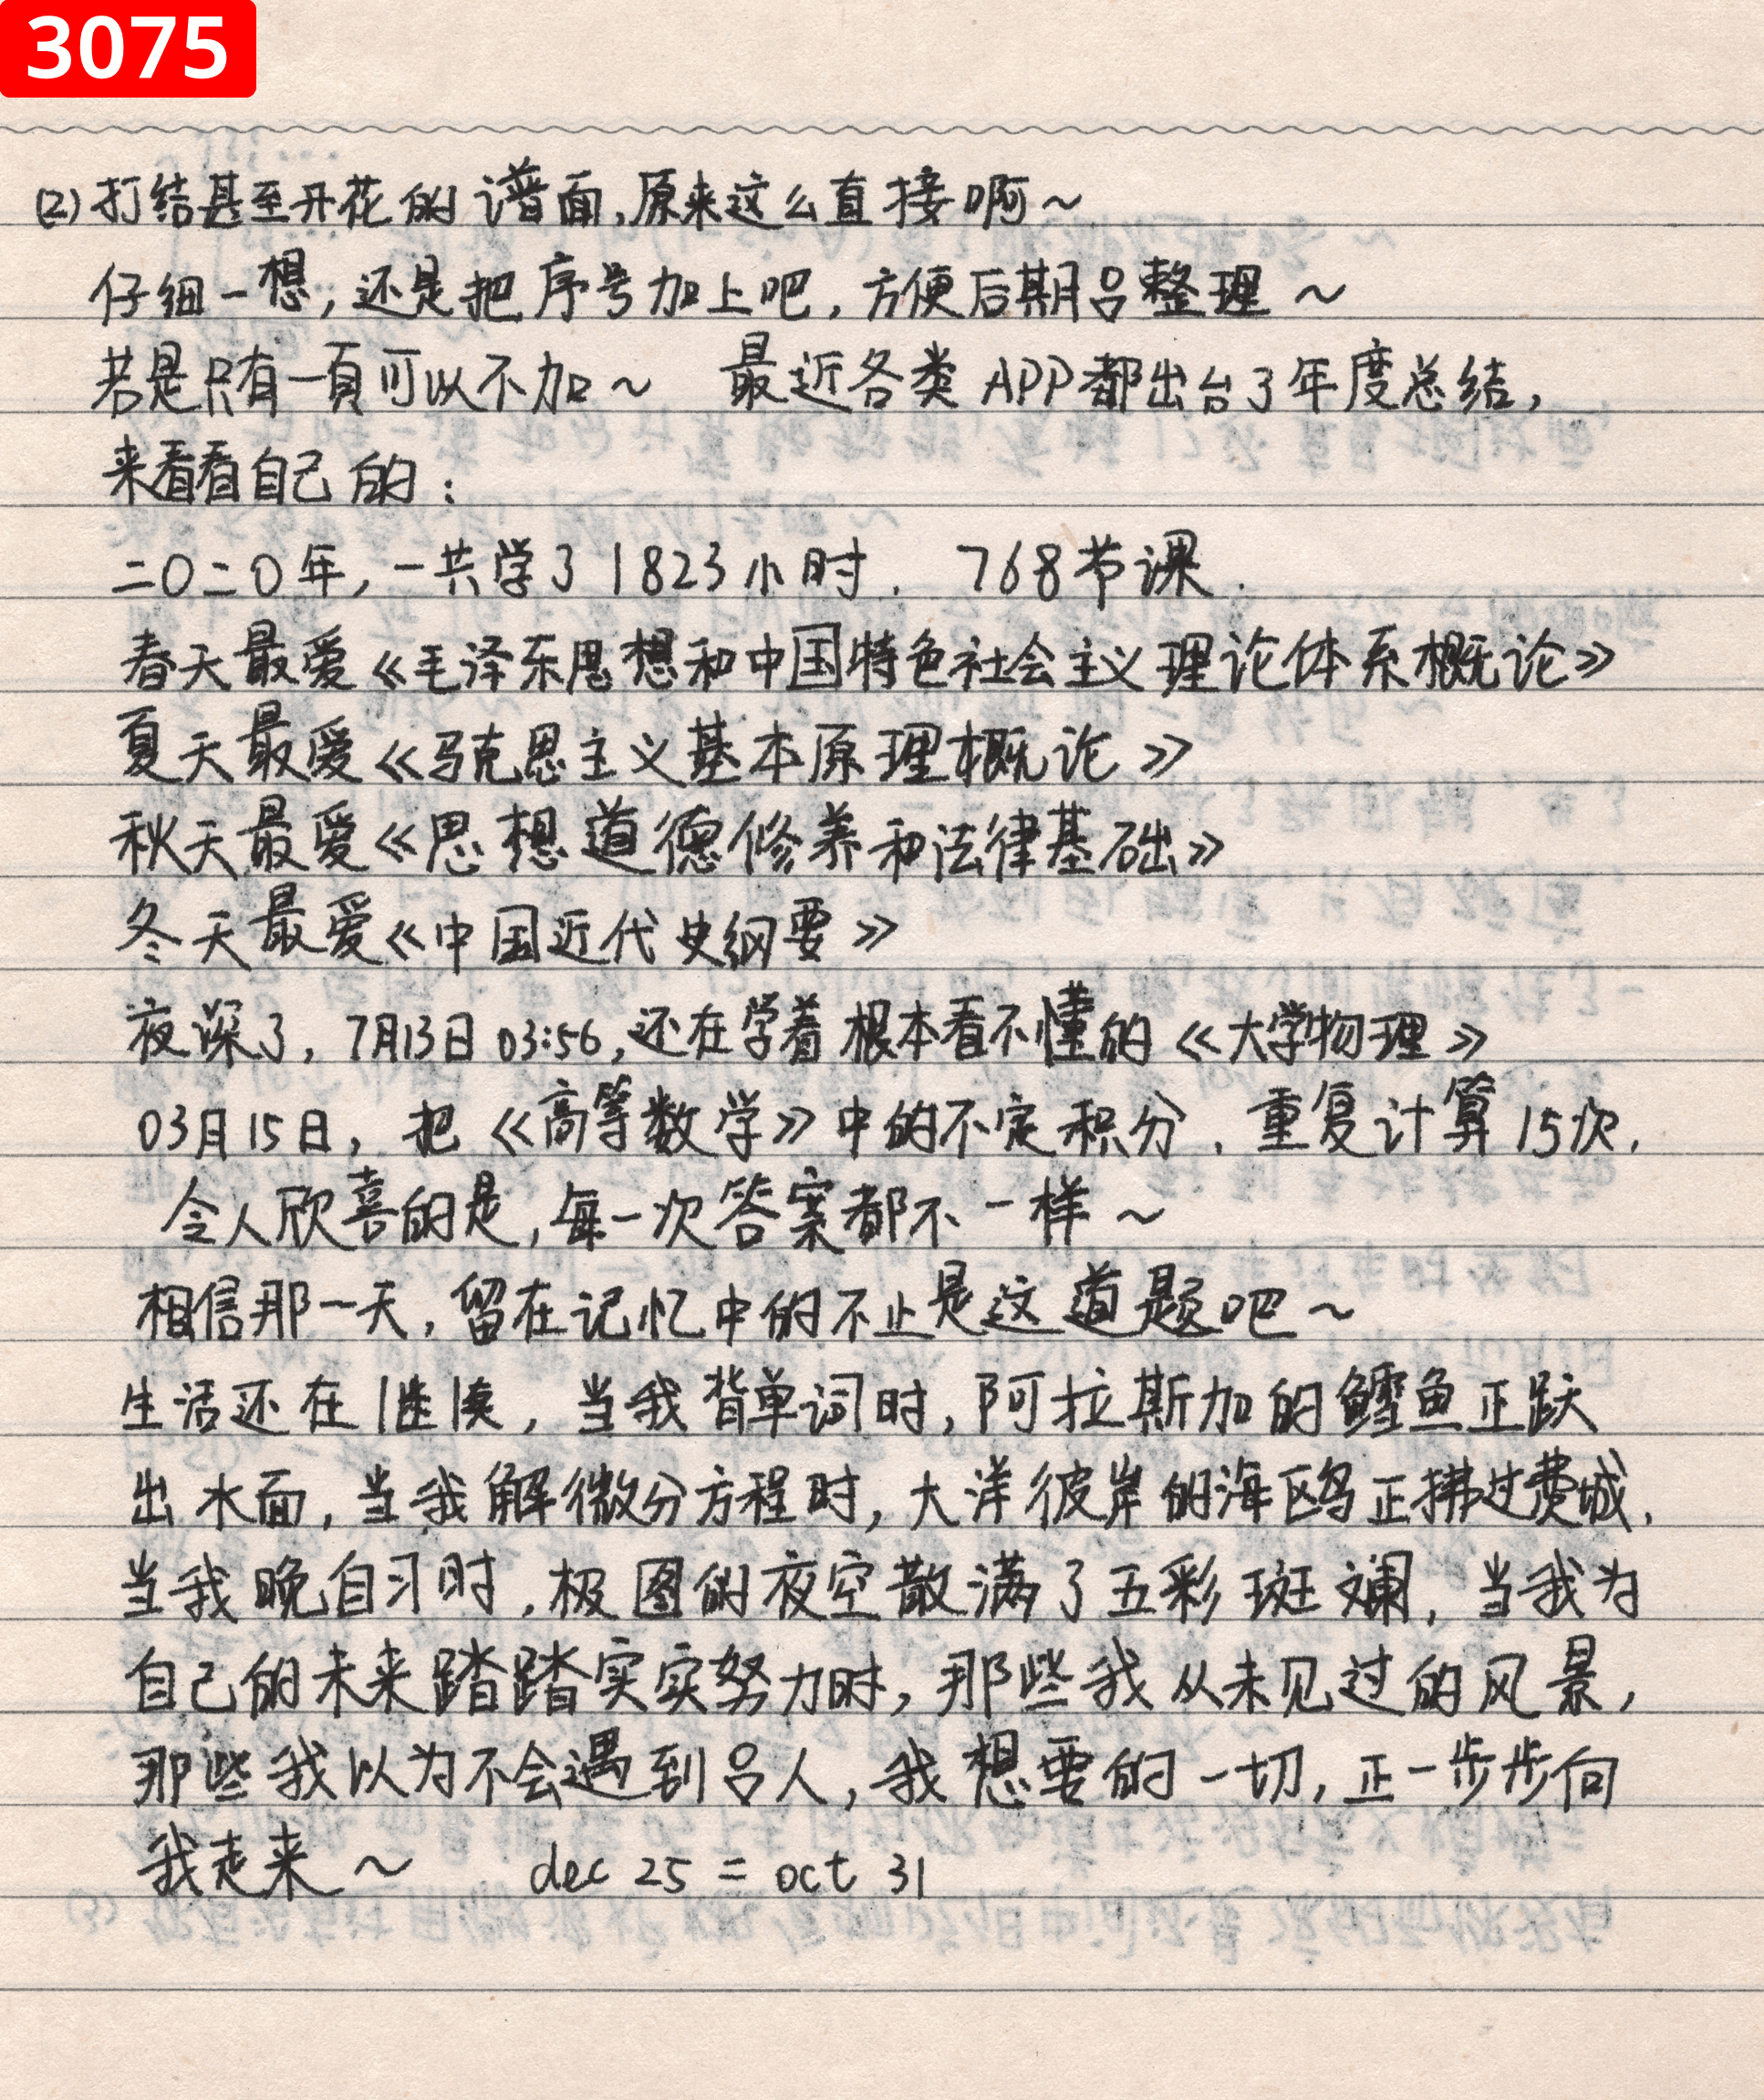 3075
(2)打结甚至开花的谱面,原来这么直接啊~
仔细一想,还是把序号加上吧,方便后期吕整理~
若是只有一页可以不加~ 最近各类APP都出台了年度总结,
来看看自己的:
二〇二〇年,一共学了1823小时. 768节课.
春天最爱《毛泽东思想和中国特色社会主义理论体系概论》
夏天最爱《马克思主义基本原理概论》
秋天最爱《思想道德修养和法律基础》
冬天最爱《中国近代史纲要》
夜深了,7月13日03:56,还在学着根本看不懂的《大学物理》
03月15日,把《高等数学》中的不定积分.重复计算15次,
令人欣喜的是,每一次答案都不一样~
相信那一天,留在记忆中的不止是这道题吧~
生活还在继续,当我背单词时,阿拉斯加的鳕鱼正跃
出水面,当我解微分方程时,大洋彼岸的海鸥正拂过费城,
当我晚自习时,极图的夜空散满了五彩斑斓,当我为
自己的未来踏踏实实努力时,那些我从未见过的风景,
那些我以为不会遇到吕人,我想要的一切,正一步步向
我走来~ dec 25 = oct 31